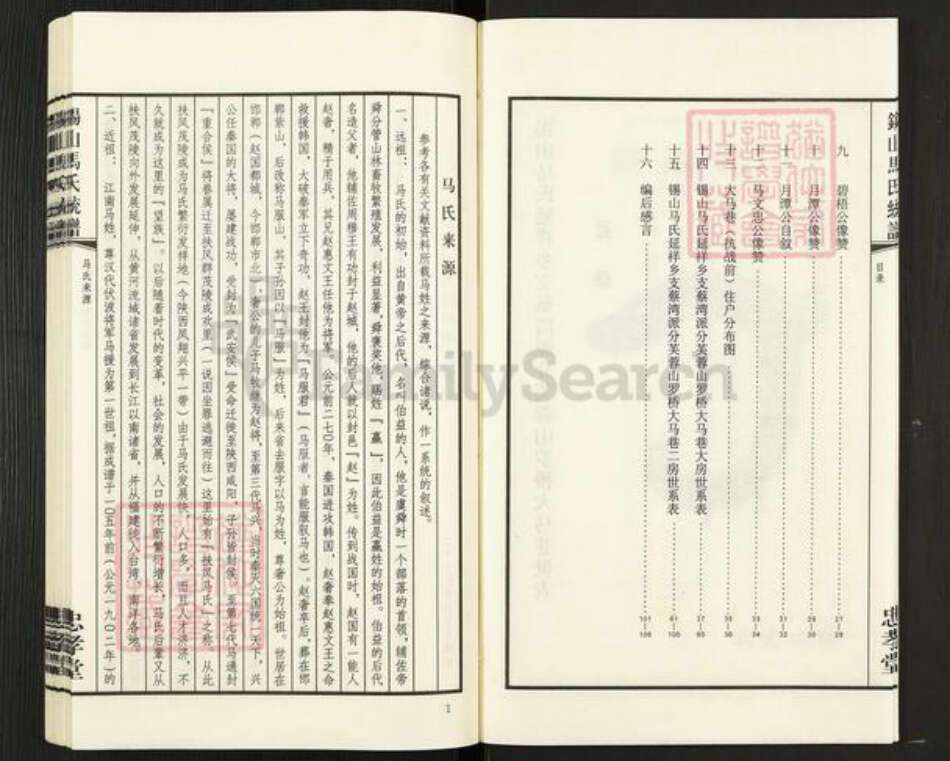 目录
九 碧梧公像赞 27 28
十 月潭公像赞 25 26
十一 月潭公自叙 30
十二 马文忠公像赞 34
十三 大马巷（抗战前）住户分布图
十四 锡山马氏延祥乡支蔡湾派分芙蓉山罗桥大马巷大房世系表 37
十五 锡山马氏延祥乡支蔡湾派分芙蓉山罗桥大马巷二房世系表 100
十六 编后感言 101 106
忠孝堂
马氏来源
参考各有关文献资料所载马姓之来源，综合诸说，作一系统的叙述。
一、远祖： 马氏的初始，出自黄帝之后代，名叫伯益的人，他是虞舜时一个部落的首领，辅佐帝
舜分管山林畜牧繁殖发展，利益显著，舜褒奖他，赐姓「嬴」，因此伯益是嬴姓的始祖。伯益的后代
名造父者，他辅佐周穆王有功封于赵城，他的后人就以封邑「赵」为姓。传到战国时，赵国有一能人
赵奢，精于用兵，其兄赵惠文王任他为将军。公元前二七〇年，秦国进攻韩国，赵奢奉赵惠文王之命
救援韩国，大破秦军立下奇功，赵王封他为「马服君」（马服者，言能服驭马也）。赵奢卒后，葬在邯
郸紫山，后改称马服山，其子孙因以「马服」为姓，后来省去服字以马为姓，尊奢公为始祖。世居在
邯郸（赵国都城，今邯郸市北），奢公的儿子马牧继为赵将，至第三代马兴，当时秦灭六国统一天下，兴
公任秦国的大将，屡建战功，受封为「武安侯」受命迁徙至陕西咸阳，子孙皆封侯。至第七代马通封
「重合侯」将眷属迁至扶风群茂陵成欢里（一说因坐罪逃避而往）这里始有「扶风马氏」之称。从此
扶风茂陵成为马氏繁衍发祥地（今陕西凤翔兴平一带）由于马氏发展快，人口多，而且人才济济，不
久就成为这里的「望族」。以后随着时代的变革，社会的发展，人口的不断繁衍增长，马氏后辈又从
扶风茂陵向外发展延伸，从黄河流域诸省发展到长江以南诸省，并从福建徙入台湾，南洋各地。
二、近祖： 江南马姓，尊汉代伏波将军马援为第一世祖，据咸谱于一〇五年前（公元一九〇二年）的
马氏来源
忠孝堂
1
FamilySearch